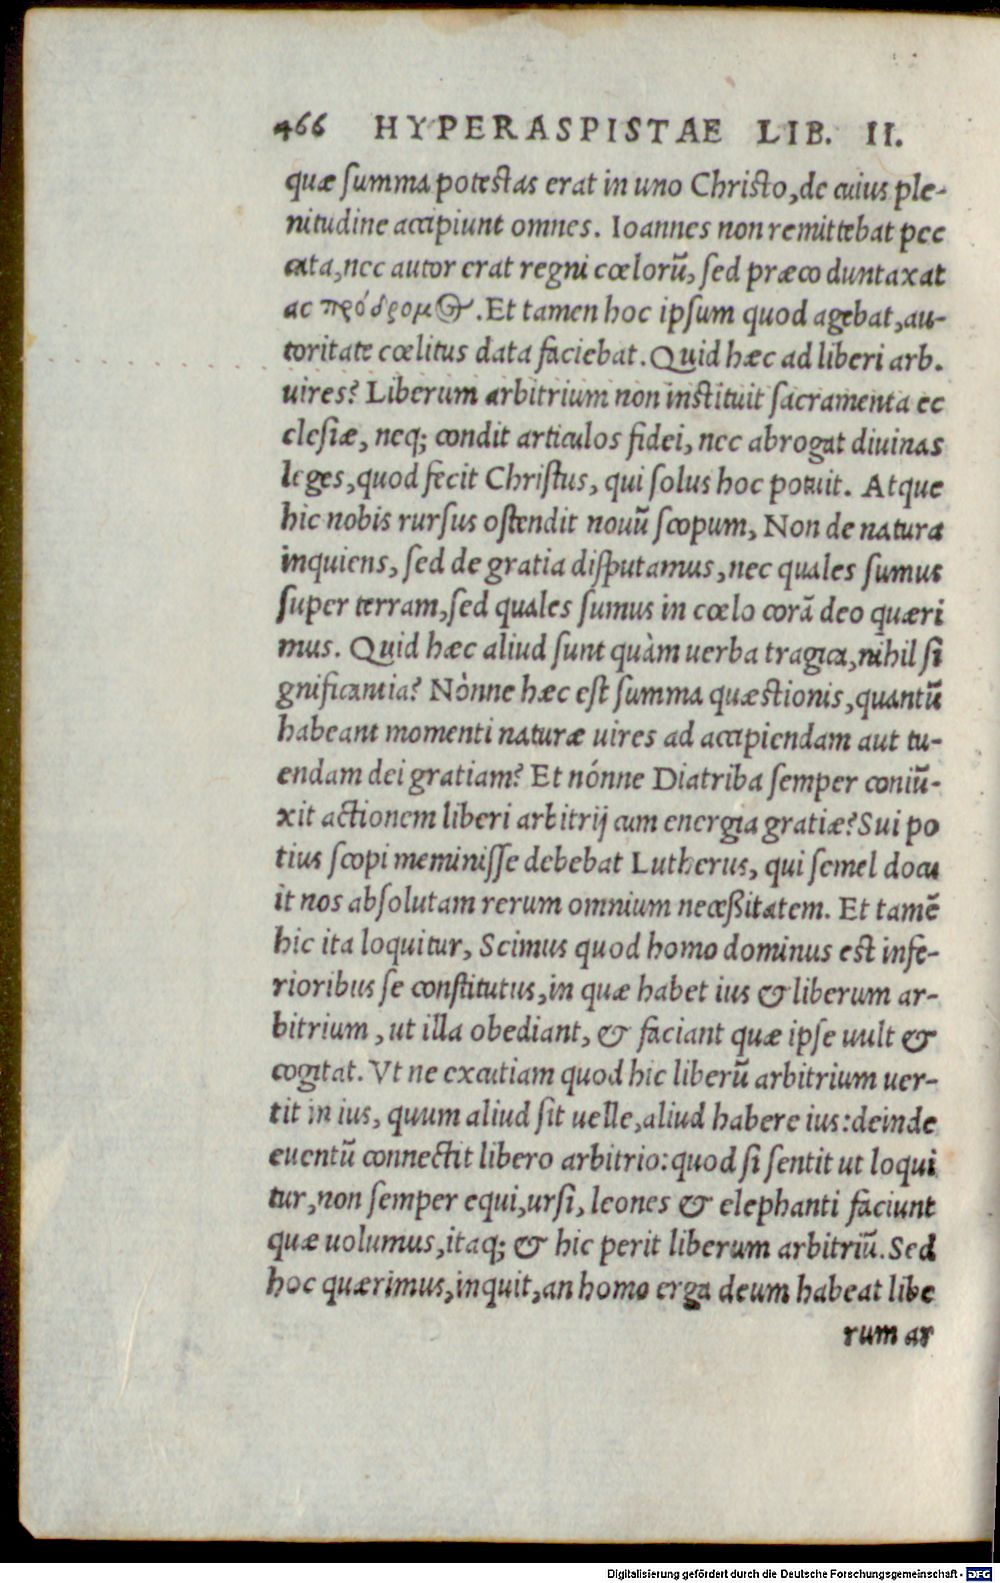 466 HYPERASPISTAE LIB. II.
quæ summa potestas erat in uno Christo, de cuius ple-
nitudine accipiunt omnes. Ioannes non remittebat pec
cata, nec autor erat regni cœlorũ, sed præco duntaxat
ac πρόδρομος. Et tamen hoc ipsum quod agebat, au-
toritate cœlitus data faciebat. Quid hæc ad liberi arb.
uires? Liberum arbitrium non instituit sacramenta ec
clesiæ, neq; condit articulos fidei, nec abrogat diuinas
leges, quod fecit Christus, qui solus hoc potuit. Atque
hic nobis rursus ostendit nouũ scopum, Non de natura
inquiens, sed de gratia disputamus, nec quales sumus
super terram, sed quales sumus in cœlo corã deo quæri
mus. Quid hæc aliud sunt quàm uerba tragica, nihil si
gnificantia? Nònne hæc est summa quæstionis, quantũ
habeant momenti naturæ uires ad accipiendam aut tu-
endam dei gratiam? Et nónne Diatriba semper coniũ-
xit actionem liberi arbitrij cum energia gratiæ? Sui po
tius scopi meminisse debebat Lutherus, qui semel docu
it nos absolutam rerum omnium neceßitatem. Et tamẽ
hic ita loquitur, Scimus quod homo dominus est infe-
rioribus se constitutus, in quæ habet ius & liberum ar-
bitrium, ut illa obediant, & faciant quæ ipse uult &
cogitat. Vt ne excutiam quod hic liberũ arbitrium uer-
tit in ius, quum aliud sit uelle, aliud habere ius: deinde
euentũ connectit libero arbitrio: quod si sentit ut loqui
tur, non semper equi, ursi, leones & elephanti faciunt
quæ uolumus, itaq; & hic perit liberum arbitriũ. Sed
hoc quærimus, inquit, an homo erga deum habeat libe
rum ar
Digitalisierung gefördert durch die Deutsche Forschungsgemeinschaft - DFG